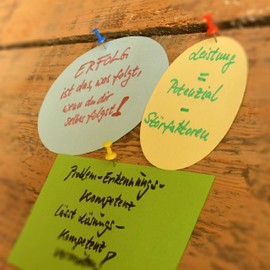 ERFOLG
ist das, was folgt,
wenn du dir
selber folgst!
Leistung
=
Potenzial
-
Störfaktoren
Problem-Erkennungs-
Kompetenz
lässt Lösungs-
Kompetenz